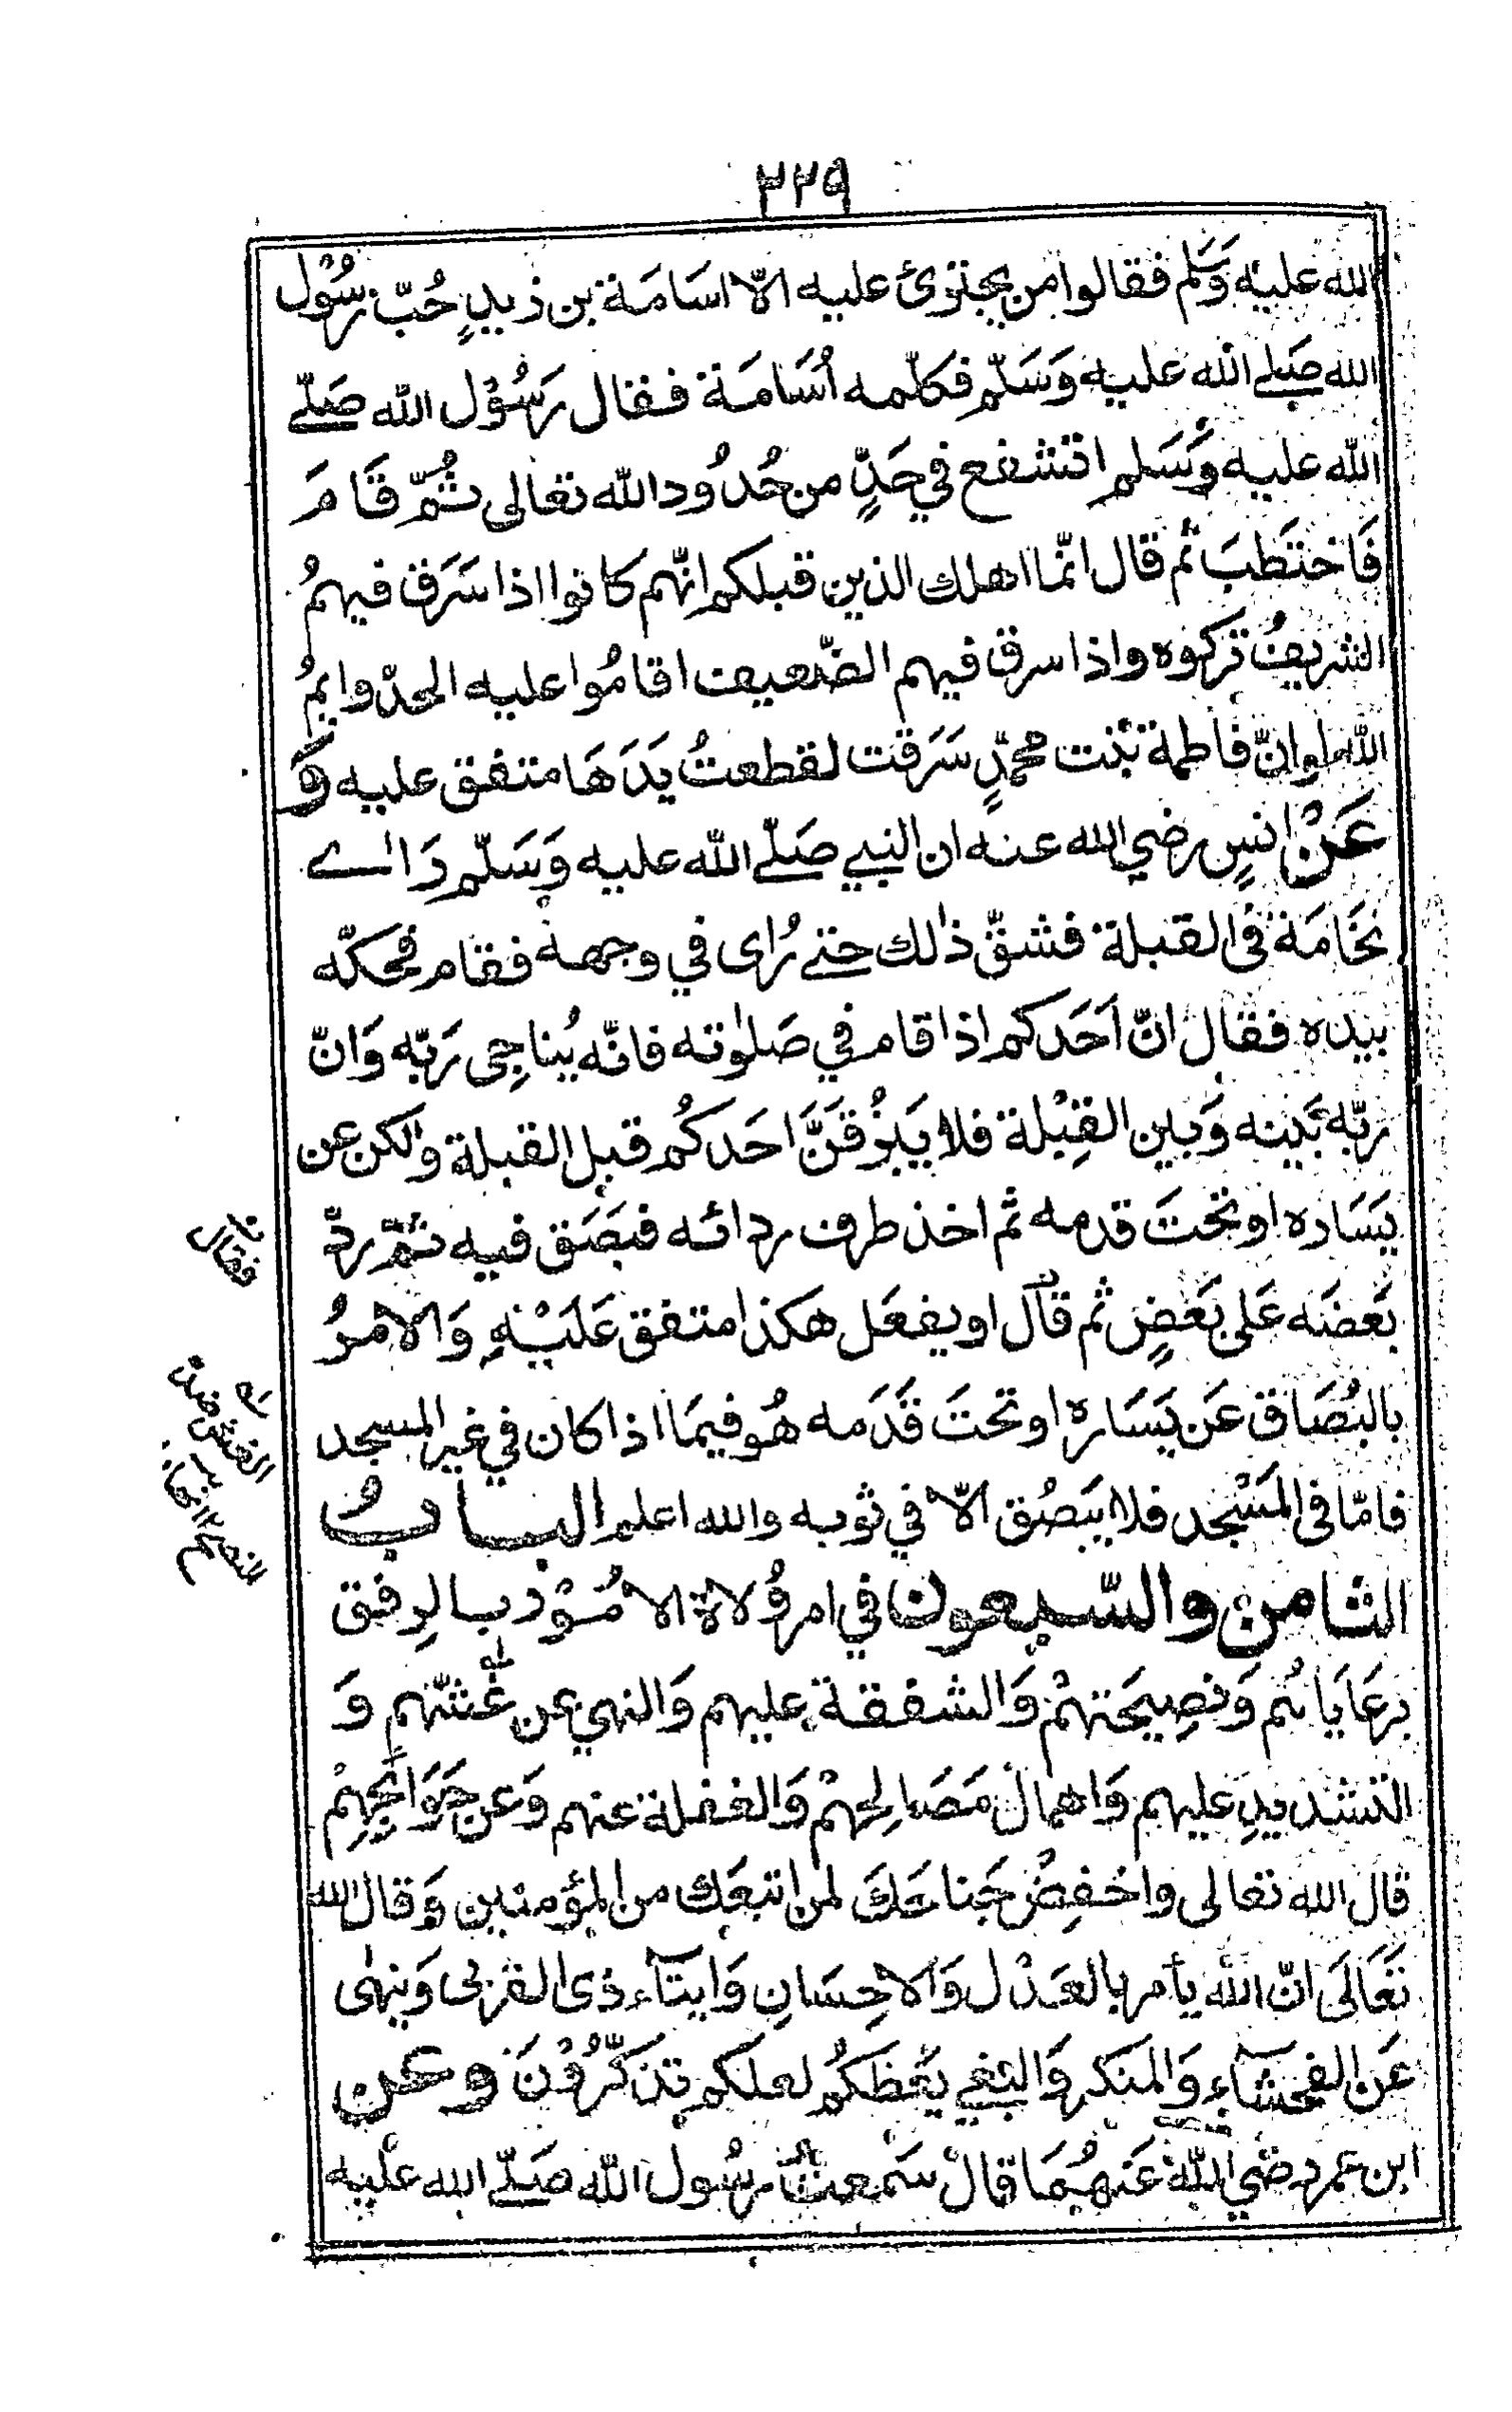 ٢٢٩
الله عليه وَسَلم فقالوا من يجترئ عليه الّا اسَامَة بن زيدٍ حُبّ رسُوْل
الله صَلے الله عليه وَسَلّم فكلّمه اُسَامَة فقال رَسُوْل الله صَلّے
الله عليه وَسَلم اتشفع في حَدٍّ من حُدُود الله تعالى ثُمّ قَامَ
فَاختَطَبَ ثم قال انّما اهلك الذين قبلكم انّهم كانوا اذا سَرَق فيهمُ
الشريفُ تركوه واذا سرق فيهم الضّعيف اقامُوا عليه الحدّ وايمُ
الله لو انّ فاطمة بنت محمّدٍ سَرَقت لقطعتُ يَدَهَا متفق عليه وَ
عَنْ انسٍ رضي الله عنه ان النبي صَلّے الله عليه وَسَلّم رَاٰے
نخَامَة في القبلة فشقّ ذٰلك حتے رُاى في وجهه فقام فحكّه
بيده فقال انّ اَحَدكم اذا قام في صَلٰوته فانّه يُناجِى رَبّه وَانّ
ربّه بَينه وَبين القِبْلة فلا يَبْزُقَنَّ احَدكُم قبل القبلة ولٰكن عن
يَسَاره او تحتَ قدمه ثم اخذ طرف ردائه فبَصَق فيه ثمّ ردّ
بَعضَه عَلى بَعضٍ ثم قال او يفعَل هكذا متفق عَلَيْهِ وَالامْرُ
بالبُصَاق عَن يَسَارِهٖ او تحتَ قَدَمه هُو فيمَا اذا كان في غير المسجد
فامّا فى المَسْجد فلا يَبصُق الّا في ثوبه والله اعلم البابُ
الثامن والسّبعون في امر وُلاة الامُوْر بالرِفق
برعَايَاهُم وَنصِيحَتهمْ وَالشفقة عليهم وَالنهي عن غشّهم وَ
التشديدِ عليهم وَاهمال مَصَالحِهمْ وَالغفلة عنهم وَعن حَوَائِجِهِمْ
قال الله تعالى واخفِضْ جَناحَكَ لمن اتبعَك من المؤمنين وَقال الله
تعَالَى انّ الله يأمر بالعَدْل وَالاحِسَانِ وَايتَآء ذى القربى وَينهٰى
عَن الفحشَآءِ وَالمنكر وَالبَغي يَعظكُم لعلكم تذكّرُوْنَ وعن
ابن عمر رضي الله عَنهُمَا قال سَمعتُ رسُول الله صَلّے الله عليه
فقال